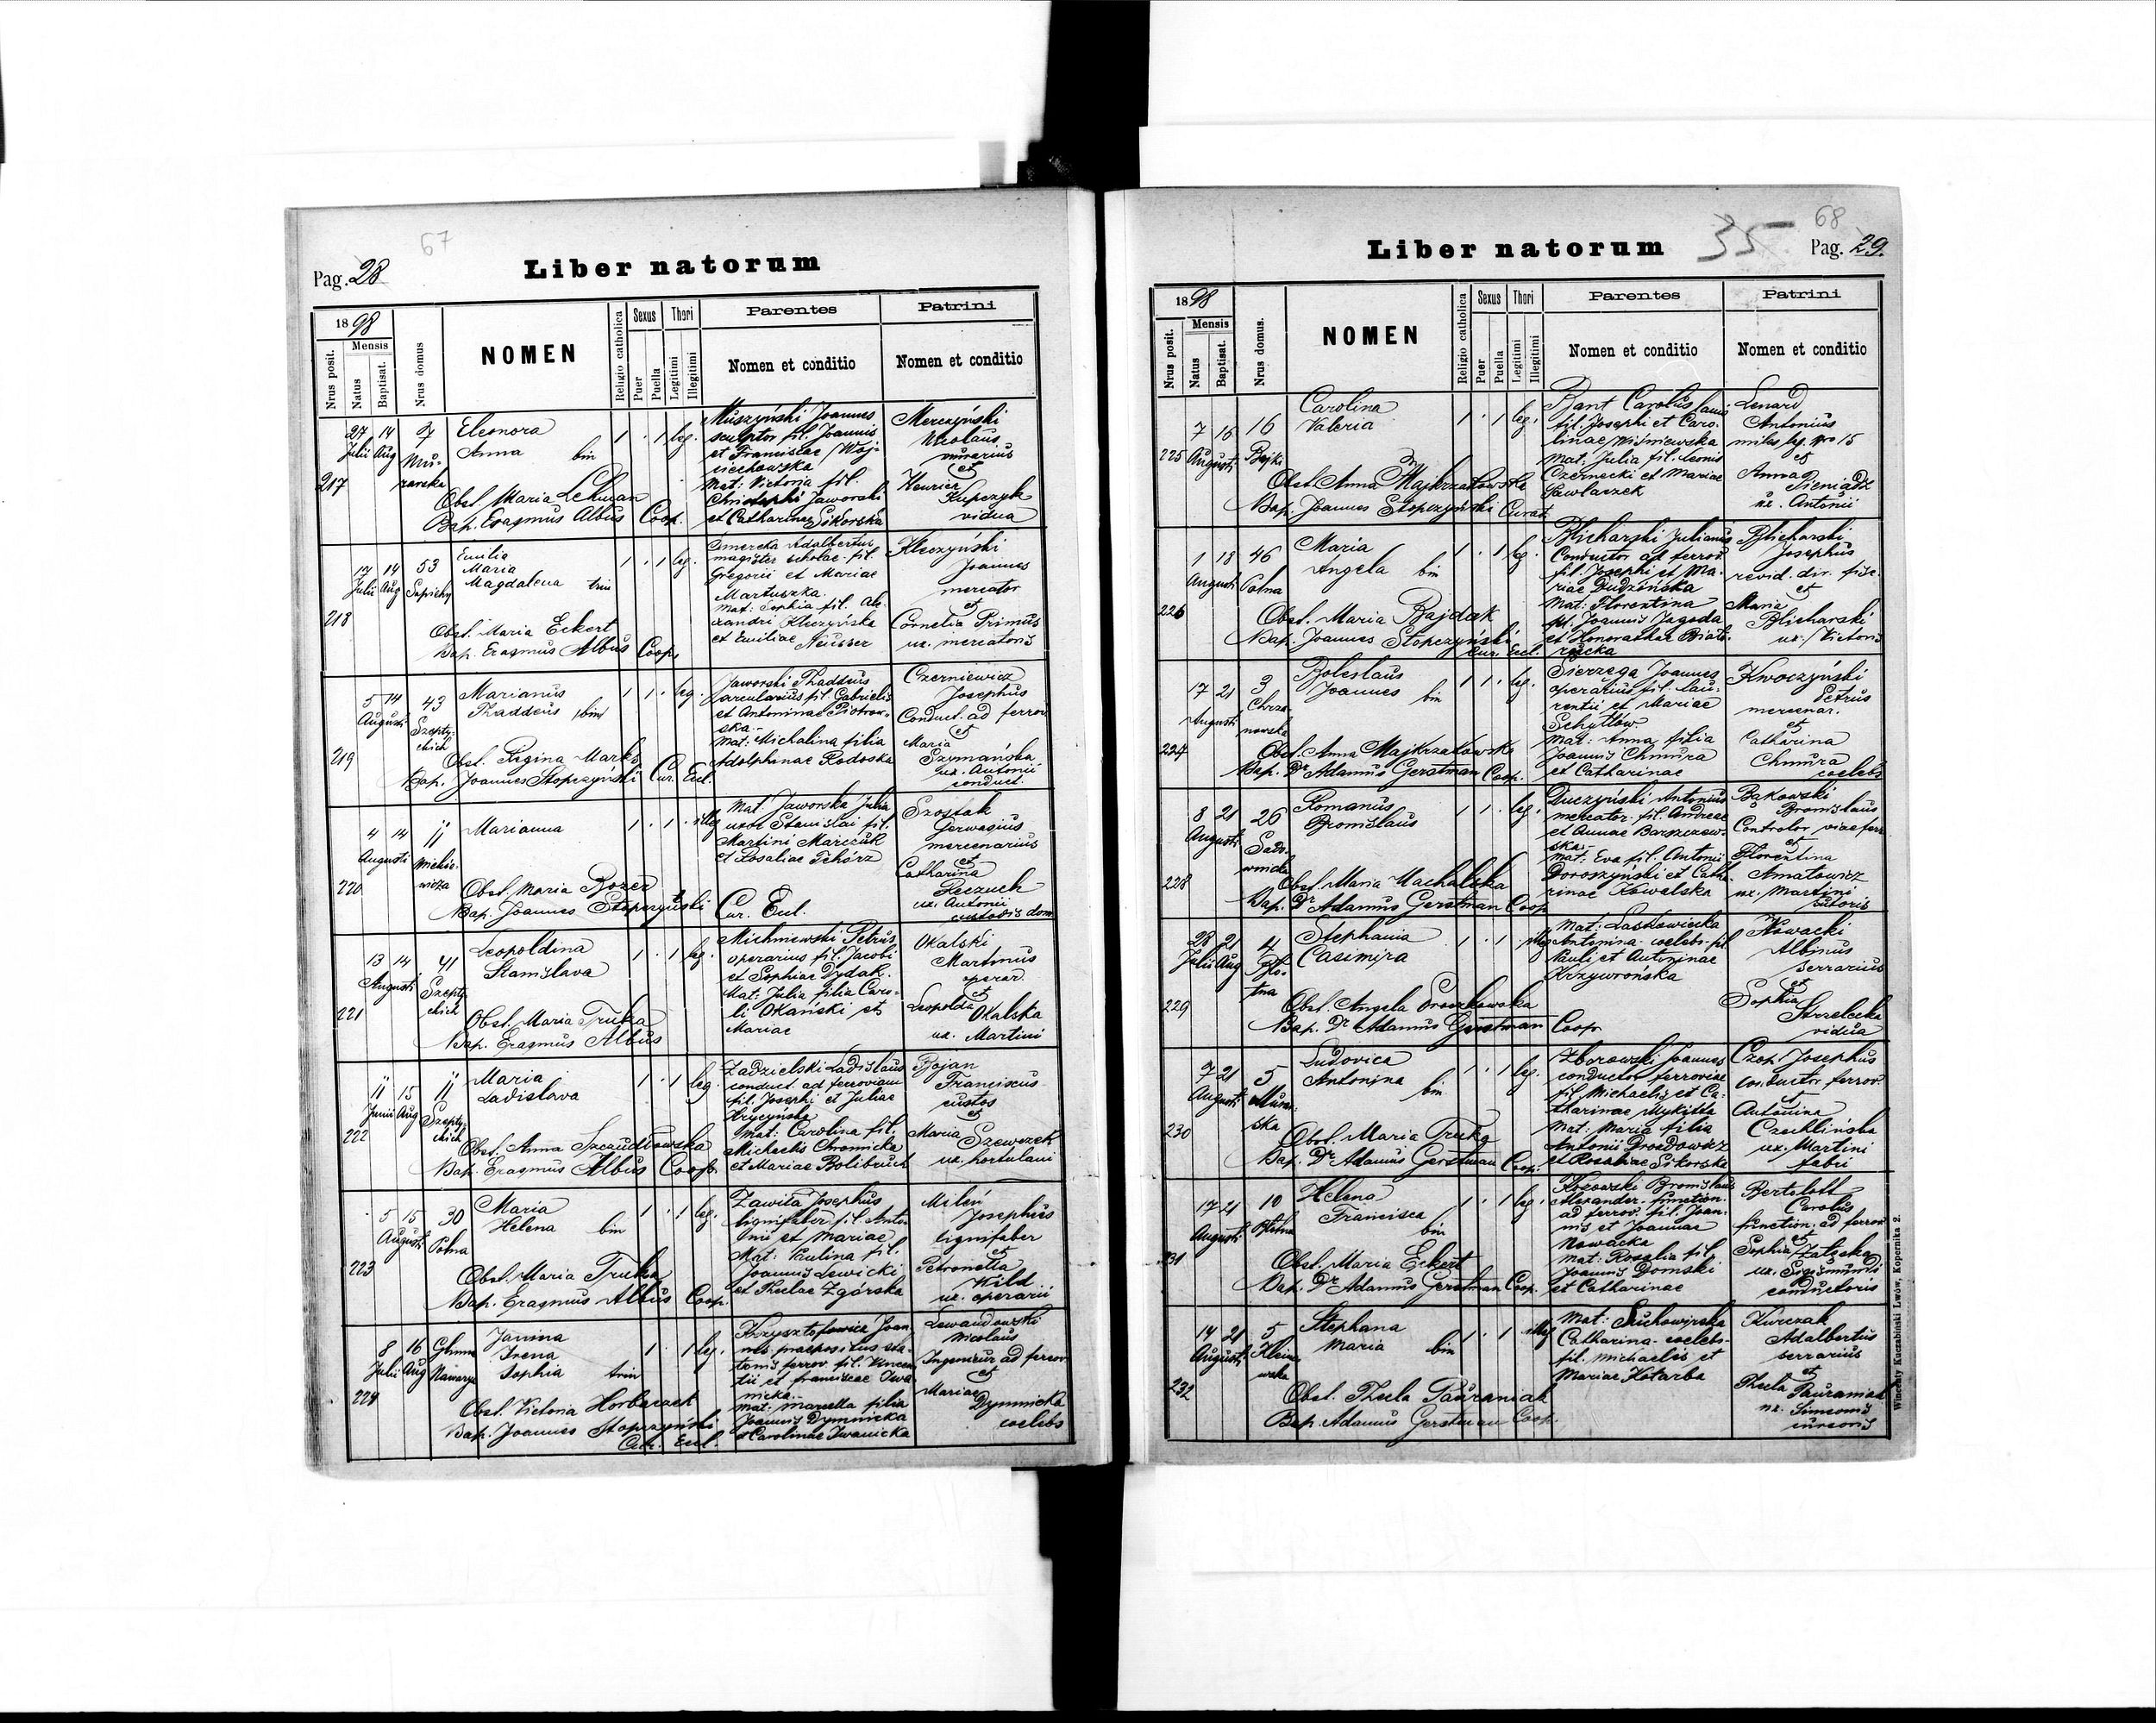 67
Pag. 28
Liber natorum
1898
Mensis
Nrus posit.
Natus
Baptisat.
Nrus domus
NOMEN
Religio catholica
Sexus
Puer
Puella
Thori
Legitimi
Illegitimi
Parentes
Nomen et conditio
Patrini
Nomen et conditio
217
27 14
Julii Aug
7
Mu-
rarska
Eleonora
Anna bin
Obst. Maria Lehman
Bap. Erasmus Albus Coop.
1 . 1 leg.
Muszyński Joannes
sculptor fil. Joannis
et Franciscae Woj-
ciechowska
Mat: Victoria fil.
Jaworski
et Catharinae Sikorska
Merczyński
Nicolaus
murarius
et
Kupczyk
vidua
218
17 14
Julii Aug
53
Sapiehy
Emilia
Maria
Magdalena trin
Obst. Maria Eckert
Bap. Erasmus Albus Coop.
1 . 1 leg.
Adalbertus
magister scholae fil.
Gregorii et Mariae
Martuszka
Mat: Sophia fil. Ale-
xandri Kleczyńska
et Emiliae Neusser
Kleczyński
Joannes
mercator
et
Cornelia Primus
ux. mercatoris
219
5 14
Augusti
43
Szepty-
ckich
Marianus
Thaddeus bin
Obst. Regina Marks
Bap. Joannes Stopczyński Cur. Eccl.
1 1 . leg.
Jaworski Thaddeus
arcularius fil. Gabrielis
et Antoninae Piotrow-
ska
Mat: Michalina filia
Adolphinae Radoska
Czerniewicz
Josephus
Conduct. ad ferrov
et
Maria
Szymańska
ux. Antonii
conduct.
220
4 14
Augusti
11
Mickie-
wicza
Marianna
Obst. Maria Rozer
Bap. Joannes Stopczyński Cur. Eccl.
1 . 1 . illeg
Mat. Jaworska Julia
uxor Stanislai fil.
Martini Marczuk
et Rosaliae Tchórz
Szostak
Gerwasius
mercenarius
et
Catharina
Reczuch
ux. Antonii
custodis dom
221
13 14
Augusti
41
Szepty
ckich
Leopoldina
Stanislava
Obst. Maria Truka
Bap. Erasmus Albus
1 . 1 leg.
Michniewski Petrus
operarius fil. Jacobi
et Sophiae Dydak.
Mat: Julia filia Caro-
li Okański et
Mariae
Okalski
Martinus
operar.
et
Leopolda Okalska
ux. Martini
222
11 15
Junii Aug
11
Szepty
ckich
Maria
Ladislava
Obst. Anna Szczudłowska
Bap. Erasmus Albus Coop.
1 . 1 leg.
Zadzielski Ladislaus
conduct. ad ferroviam
fil. Josephi et Juliae
Hrycyńska
Mat: Carolina fil.
Michaelis Chromicka
et Mariae Bolibruch
Bojan
Franciscus
custos
et
Maria Szewczek
ux. hortulani
223
5 15
Augusti
30
Polna
Maria
Helena bin
Obst. Maria Truka
Bap. Erasmus Albus Coop.
1 . 1 leg.
Zawiła Josephus
lignifaber fil. Anto-
nii et Mariae
Mat: Paulina fil.
Joannis Lewicki
et Theclae Zgórska
Milen
Josephus
lignifaber
et
Petronella
Wild
ux. operarii
224
8 16
Julii Aug
Glinna
Nawarya
Janina
Irena
Sophia trin
Obst. Victoria Horbaczek
Bap. Joannes Stopczyński
Cur. Eccl.
1 . 1 leg.
Krzysztofowicz Joan
nes praepositus sta-
tionis ferrov. fil. Vincen
tii et Franciscae Iwa
nicka
Mat: Marcella filia
Joannis Dymnicka
et Carolinae Iwanicka
Lewandowski
Nicolaus
Ingenieur ad ferrov
et
Mariae
Dymnicka
coelebs
68
35
Liber natorum
Pag. 29.
1898
Mensis
Nrus posit.
Natus
Baptisat.
Nrus domus.
NOMEN
Religio catholica
Sexus
Puer
Puella
Thori
Legitimi
Illegitimi
Parentes
Nomen et conditio
Patrini
Nomen et conditio
225
7 16
Augusti
16
Bajki
Carolina
Valeria
Obst. Anna Majkrzakowska
Bap. Joannes Stopczyński Curat.
1 . 1 leg.
Bant Carolus
fil. Josephi et Caro-
linae Wiśniewska
Mat: Julia fil. Leonis
Czernecki et Mariae
Pawlaczek
Lenard
Antonius
miles leg. Nro 15
et
Anna
Pieniądz
ux. Antonii
226
1 18
Augusti
46
Polna
Maria
Angela bin
Obst. Maria Bajdak
Bap. Joannes Stopczyński
Cur. Eccl.
1 . 1 leg.
Blicharski Julianus
Conductor ad ferrov
fil. Josephi et Ma-
riae Dudzińska
Mat: Florentina
fil. Joannis Jagoda
et Honorathae Biało-
rucka
Blicharski
Josephus
revid. dir. fisc.
et
Maria
Blicharski
ux. Victoris
17 21
Augusti
3
Chrza-
nowska
Boleslaus
Joannes bin
Obst. Anna Majkrzakowska
Bap. Dr Adamus Gerstman Coop.
1 1 . leg.
Sierzega Joannes
operarius fil. Lau-
rentii et Mariae
Schytłów
Mat: Anna filia
Joannis Chmura
et Catharinae
Kwoczyński
Petrus
mercenar.
et
Catharina
Chmura
coelebs
228
8 21
Augusti
26
Sado-
wnicka
Romanus
Bronislaus
Obst. Maria Machalska
Bap. Dr Adamus Gerstman Coop
1 1 . leg.
Duczyński Antonius
mercator fil. Andreae
et Annae Barszczew-
ska
Mat: Eva fil. Antonii
Doroszyński et Catha-
rinae Kowalska
Bakowski
Bronislaus
Controlor viae ferr
et
Florentina
Amatowicz
ux. Martini
sutoris
229
28 21
Julii Aug
4
Stephania
Casimira
Obst. Angela Proczkowska
Bap. Dr Adamus Gerstman Coop
1 . 1 illeg
Mat: Laskowiecka
Antonina coelebs fil
Pauli et Antoninae
Krzyworońska
Nowacki
Albinus
serrarius
et
Sophia
Strzelecka
vidua
230
7 21
Augusti
5
Murar-
ska
Ludovica
Antonina bin
Obst. Maria Truka
Bap. Dr Adamus Gerstman Coop.
1 . 1 leg.
Zborowski Joannes
conductor ferroviae
fil Michaelis et Ca-
tharinae Mykitta
Mat: Maria filia
Antonii Drozdowicz
et Rosaliae Sikorska
Czop Josephus
conductor ferrov.
et
Antonina
Czechlińska
ux. Martini
fabri
231
17 21
Augusti
10
Helena
Francisca
bin
Obst. Maria Eckert
Bap. Dr Adamus Gerstman Coop.
1 . 1 leg.
Kozowski Bronislaus
Alexander function.
ad ferrov. fil. Joan-
nis et Joannae
Nowacka
Mat: Rosalia fil
Joannis Domski
et Catharinae
Bertoloff
Carolus
function. ad ferrov
et
Sophia Załęska
ux. Sigismundi
conductoris
232
14 21
Augusti
5
Kleino
wska
Stephana
Maria bin
Obst. Thecla Pauraniak
Bap. Adamus Gerstman Coop.
1 . 1 illeg
Mat: Suchowijska
Catharina coelebs
fil. Michaelis et
Mariae Kotarba
Kurczak
Adalbertus
serrarius
et
Thecla
Pauraniak
ux. Simeonis
cursoris
Wincenty Kuczabiński Lwów, Kopernika 2.